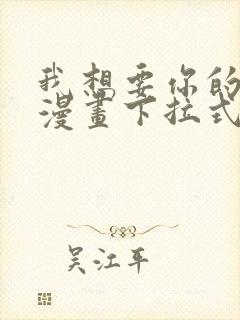 我想要你的
漫畫下拉式
吴江平